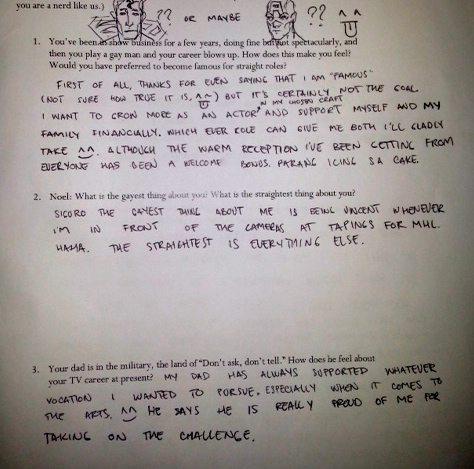 you are a nerd like us.)
?? OR MAYBE ?? ^ ^
1. You've been in show business for a few years, doing fine but not spectacularly, and
then you play a gay man and your career blows up. How does this make you feel?
Would you have preferred to become famous for straight roles?
FIRST OF ALL, THANKS FOR EVEN SAYING THAT I AM "FAMOUS"
(NOT SURE HOW TRUE IT IS, ^^) BUT IT'S CERTAINLY NOT THE GOAL.
IN MY CHOSEN CRAFT
I WANT TO GROW MORE AS AN ACTOR ^ AND SUPPORT MYSELF AND MY
FAMILY FINANCIALLY. WHICH EVER ROLE CAN GIVE ME BOTH I'LL GLADLY
TAKE ^^. ALTHOUGH THE WARM RECEPTION I'VE BEEN GETTING FROM
EVERYONE HAS BEEN A WELCOME BONUS. PARANG ICING SA CAKE.
2. Noel: What is the gayest thing about you? What is the straightest thing about you?
SIGORO THE GAYEST THING ABOUT ME IS BEING VINCENT WHENEVER
I'M IN FRONT OF THE CAMERAS AT TAPINGS FOR MHL.
HAHA. THE STRAIGHTEST IS EVERYTHING ELSE.
3. Your dad is in the military, the land of "Don't ask, don't tell." How does he feel about
your TV career at present? MY DAD HAS ALWAYS SUPPORTED WHATEVER
VOCATION I WANTED TO PURSUE. ESPECIALLY WHEN IT COMES TO
THE ARTS. ^^ HE SAYS HE IS REALLY PROUD OF ME FOR
TAKING ON THE CHALLENGE.